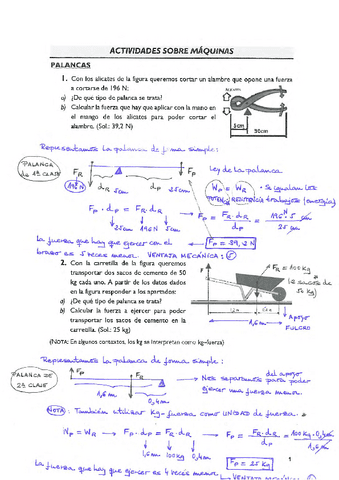 ACTIVIDADES SOBRE MÁQUINAS
PALANCAS
1. Con los alicates de la figura queremos cortar un alambre que opone una fuerza
a cortarse de 196 N:
a) ¿De qué tipo de palanca se trata?
b) Calcular la fuerza que hay que aplicar con la mano en
el mango de los alicates para poder cortar el
alambre. (Sol.: 39,2 N)
Representamos la palanca de forma simple:
PALANCA
DE 1ª CLASE
FR
FP
196 N
dR 5cm
dP 25cm
Ley de la palanca
WP = WR
FP · dP = FR · dR
25cm 196N 5cm
FP = FR · dR / dP = 196 · 5 cm / 25 cm
La fuerza que hay que ejercer con el
FP = 39,2 N
brazo es 5 veces menor. VENTAJA MECÁNICA: 5
2. Con la carretilla de la figura queremos
transportar dos sacos de cemento de 50
kg cada uno. A partir de los datos dados
en la figura responder a los apartados:
a) ¿De qué tipo de palanca se trata?
b) Calcular la fuerza a ejercer para poder
transportar los sacos de cemento en la
carretilla. (Sol.: 25 kg)
FR = 100 kg
2 sacos de
50 kg
1,6 m
APOYO
FULCRO
(NOTA: En algunos contextos, los kg se interpretan como kg-fuerza)
Representamos la palanca de forma simple:
PALANCA DE
2ª CLASE
FP
FR
1,6 m
0,4 m
Nos separamos del apoyo para poder
ejercer una fuerza menor.
NOTA: También utilizar Kg-fuerza como UNIDAD de fuerza.
WP = WR
FP · dP = FR · dR
1,6m 100kg 0,4m
FP = FR · dR / dP = 100 Kg · 0,4 m / 1,6 m
La fuerza que hay que ejercer es 4 veces menor.
FP = 25 Kg
1
VENTAJA MECÁNICA: